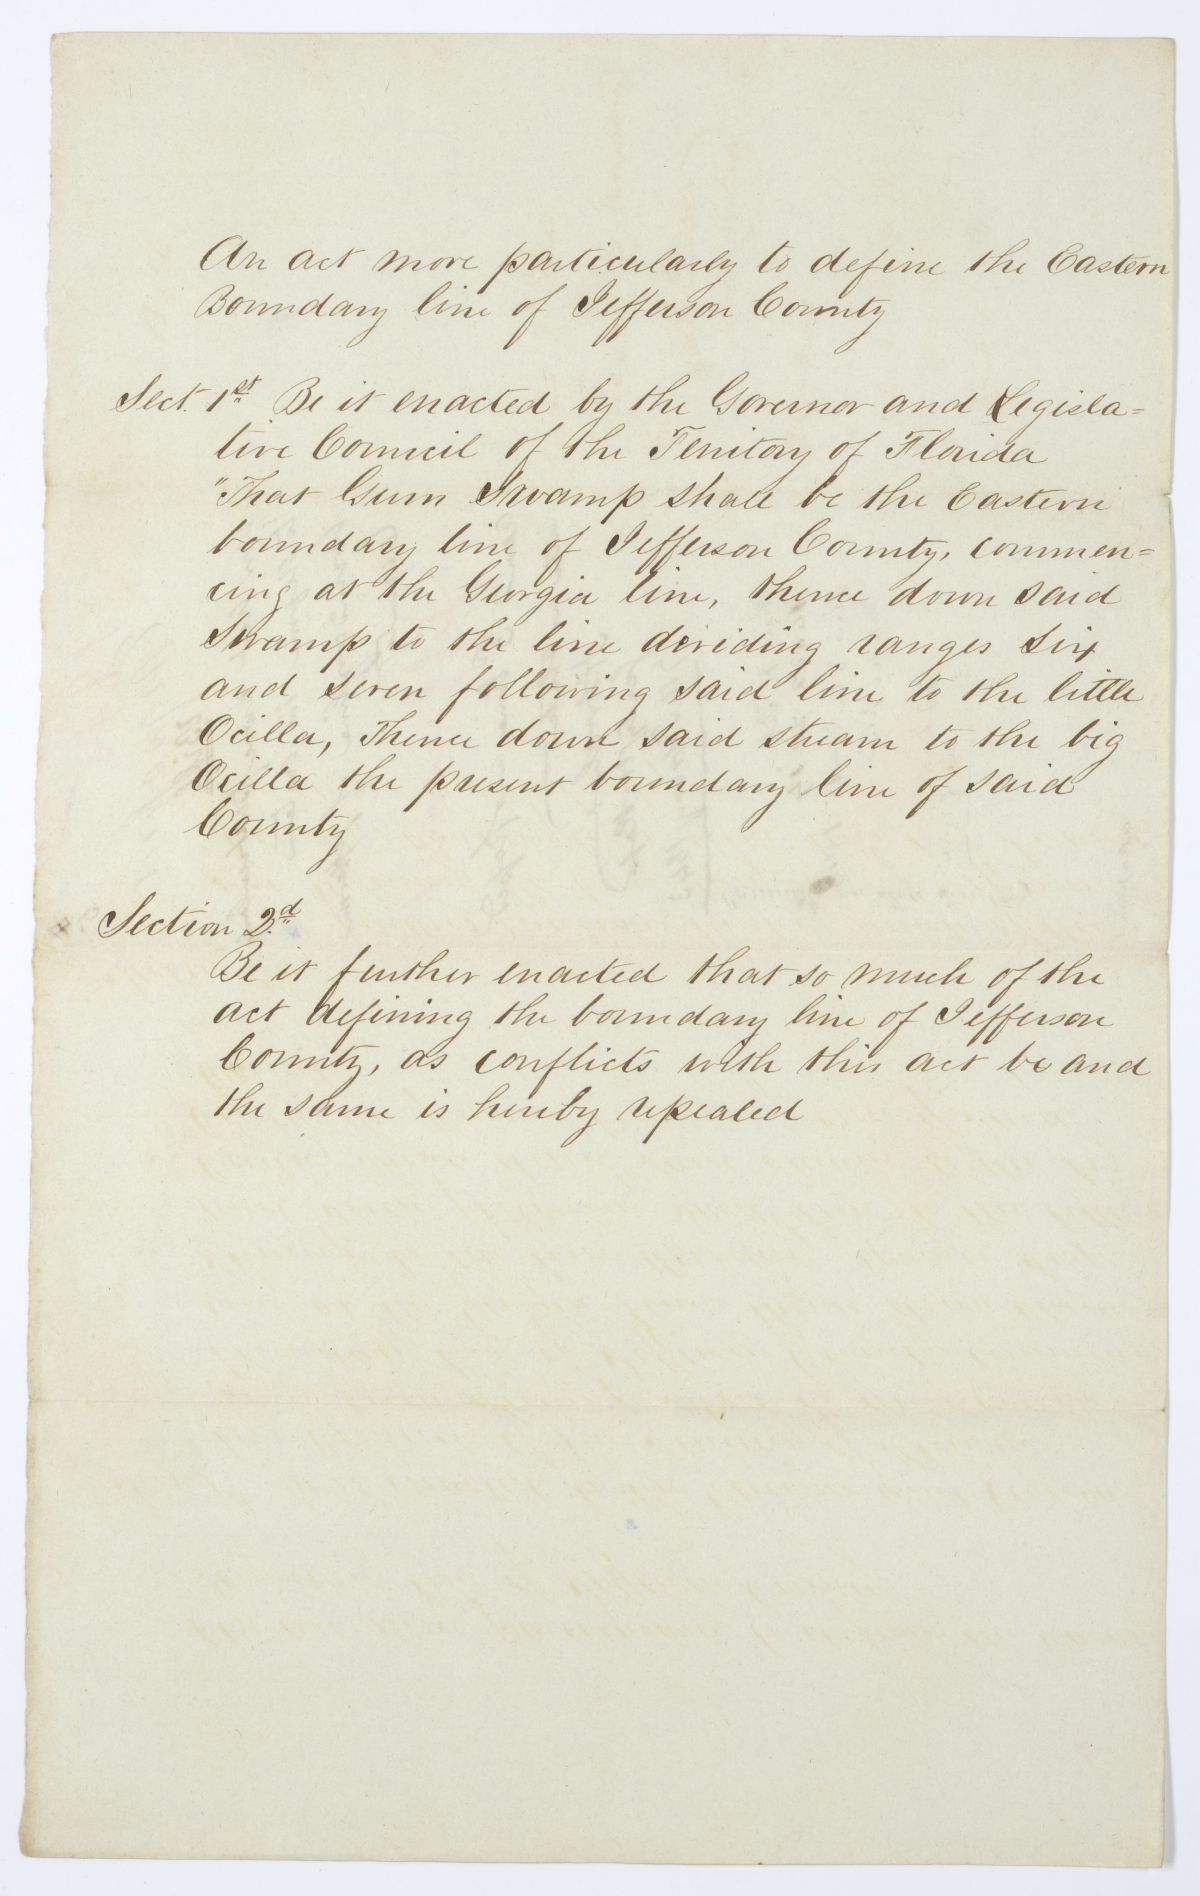 An act more particularly to define the Eastern
Boundary line of Jefferson County
Sect. 1st Be it enacted by the Governor and Legisla=
tive Council of the Territory of Florida
"That Gum Swamp shall be the Eastern
boundary line of Jefferson County, commen=
cing at the Georgia line, thence down said
Swamp to the line dividing ranges Six
and seven following said line to the little
Ocilla, Thence down said stream to the big
Ocilla the present boundary line of said
County
Section 2.d
Be it further enacted that so much of the
act defining the boundary line of Jefferson
County, as conflicts with this act be and
the same is hereby repealed